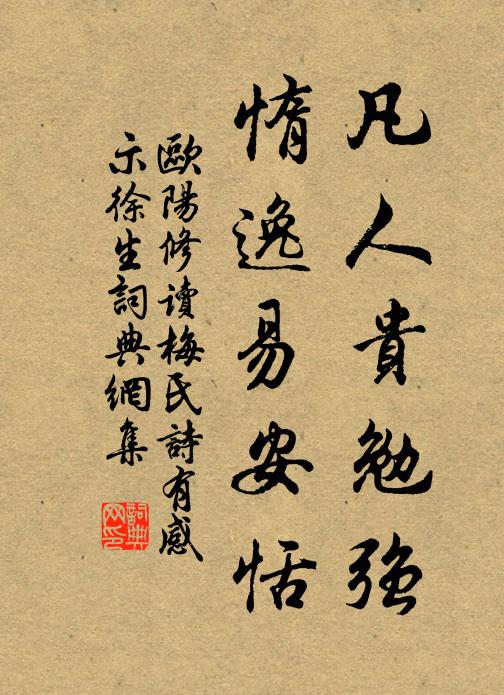 凡人貴勉強
惰逸易安恬
歐陽修讀梅氏詩有感
示徐生詞典網集
詞典
网印